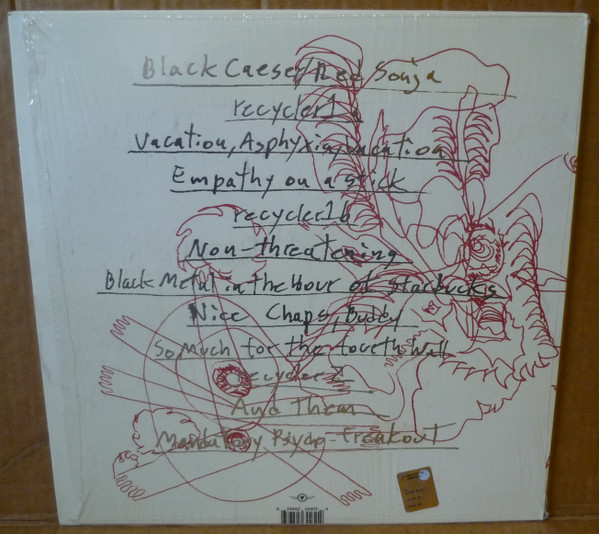 Black Caeser/Red Sonja
recycler1a
Vacation, Asphyxia, vacation
Empathy on a stick
recycler1b
Non-threatening
Black Metal in the hour of starbucks
Nice Chaps, Buddy
So Much for the fourth Wall
recycler2
And Then
Mandatory Psycho-Freakout